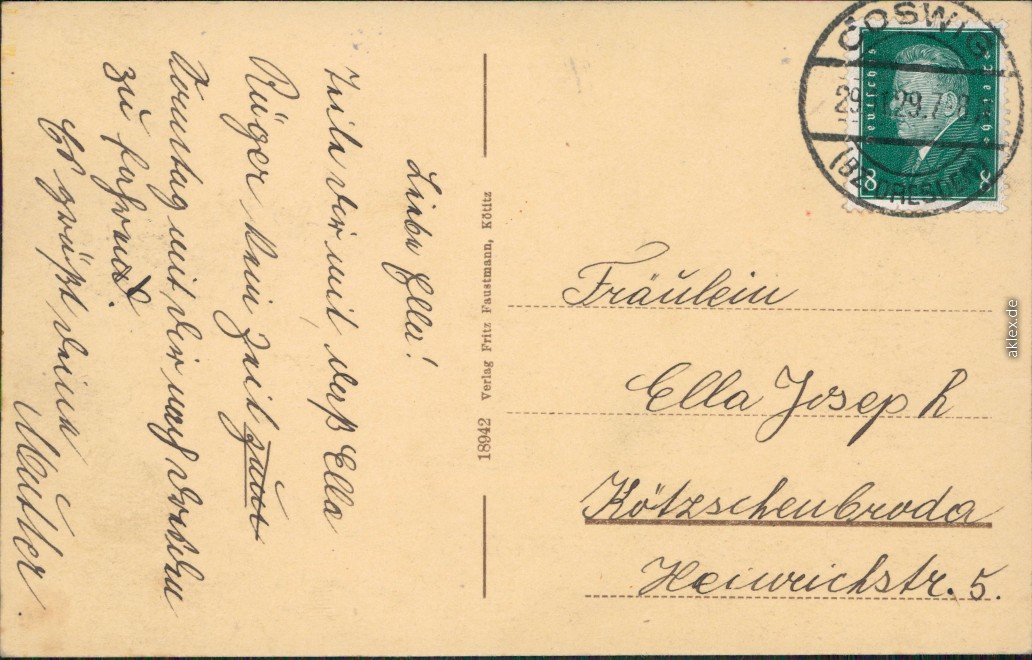 Liebe Ella!
Teile dir mit, daß Ella
Rüger kein Zeit hat
Sonntag mit dir nach Dresden
zu fahren.
Es grüßt deine
Mutter.
18942 Verlag Fritz Faustmann, Kötitz
COSWIG
29. 29. 7
(BZ. DRESDEN)
Deutsches Reich
8 8
Fräulein
Ella Joseph
Kötzschenbroda
Heinrichstr. 5.
aklex.de